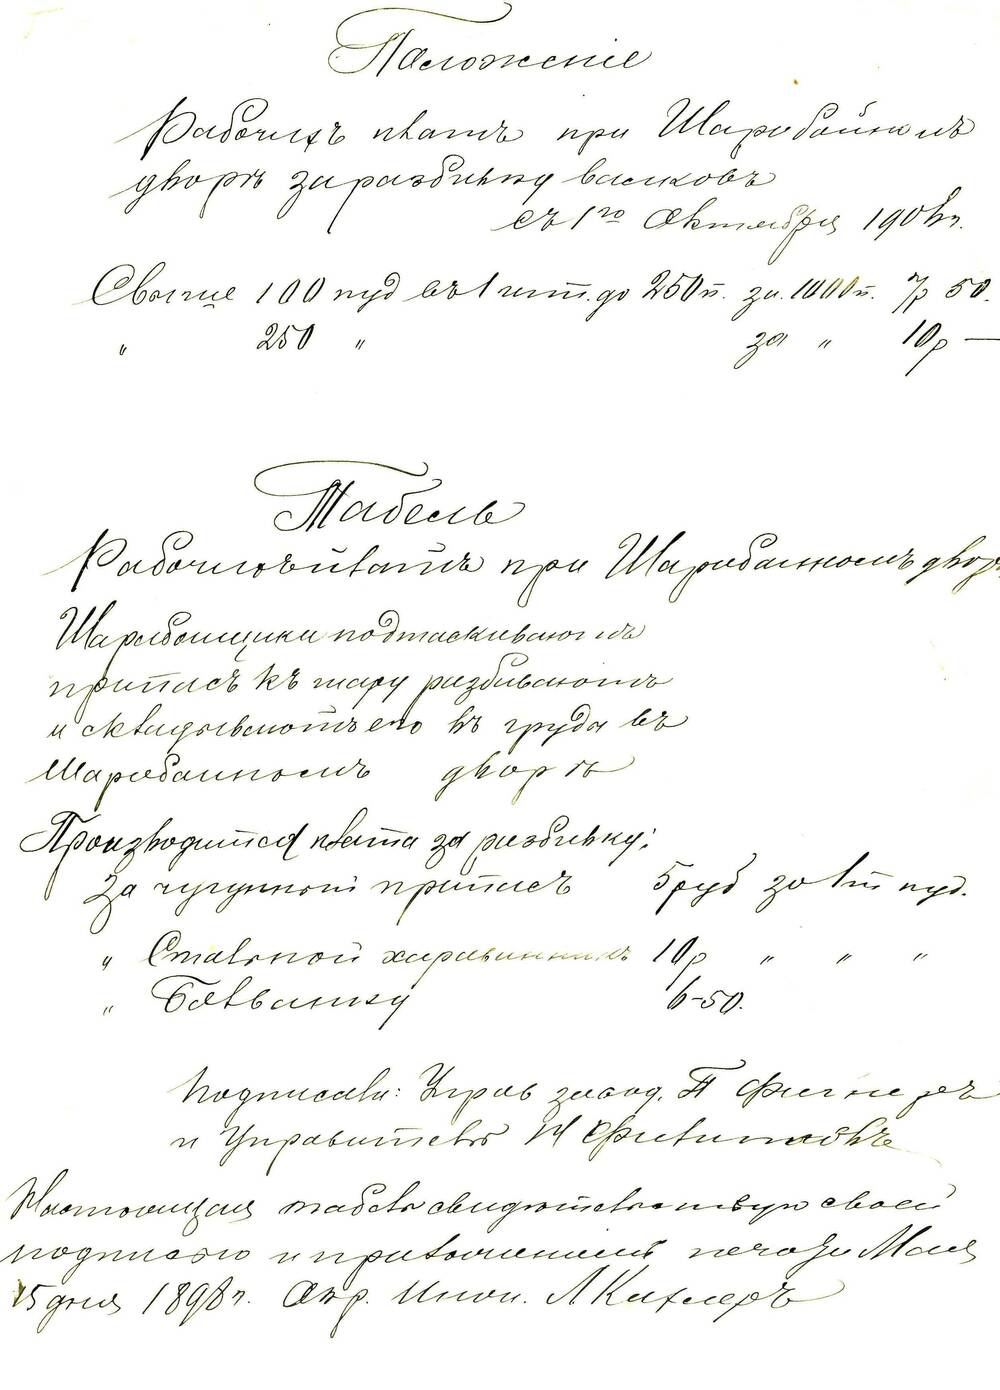 Положеніе
Рабочихъ платъ при Шаробойномъ
дворѣ за разбивку валковъ
съ 1го Октября 190 г.
Свыше 100 пуд въ 1 шт. до 250 п. за 1000 п. 7р 50.
" 250 " за " 10р —
Табель
Рабочимъ платъ при Шаробойномъ дворѣ
Шаробойщики подтаскиваютъ
припасъ къ шару разбиваютъ
и складываютъ его въ груда въ
Шаробойномъ дворѣ
Производится плата за разбивку:
За чугунной припасъ 5 руб за 1т пуд.
" Стальной 10р " " "
" Болванку 6-50.
Подписали: Управ завод. П Фигнеръ
и Управитель И Филипповъ
Настоящая табель свидѣтельствую своей
подписью и приложеніемъ печати Мая
15 дня 1898 г. Окр. Инж. Л Кихлеръ